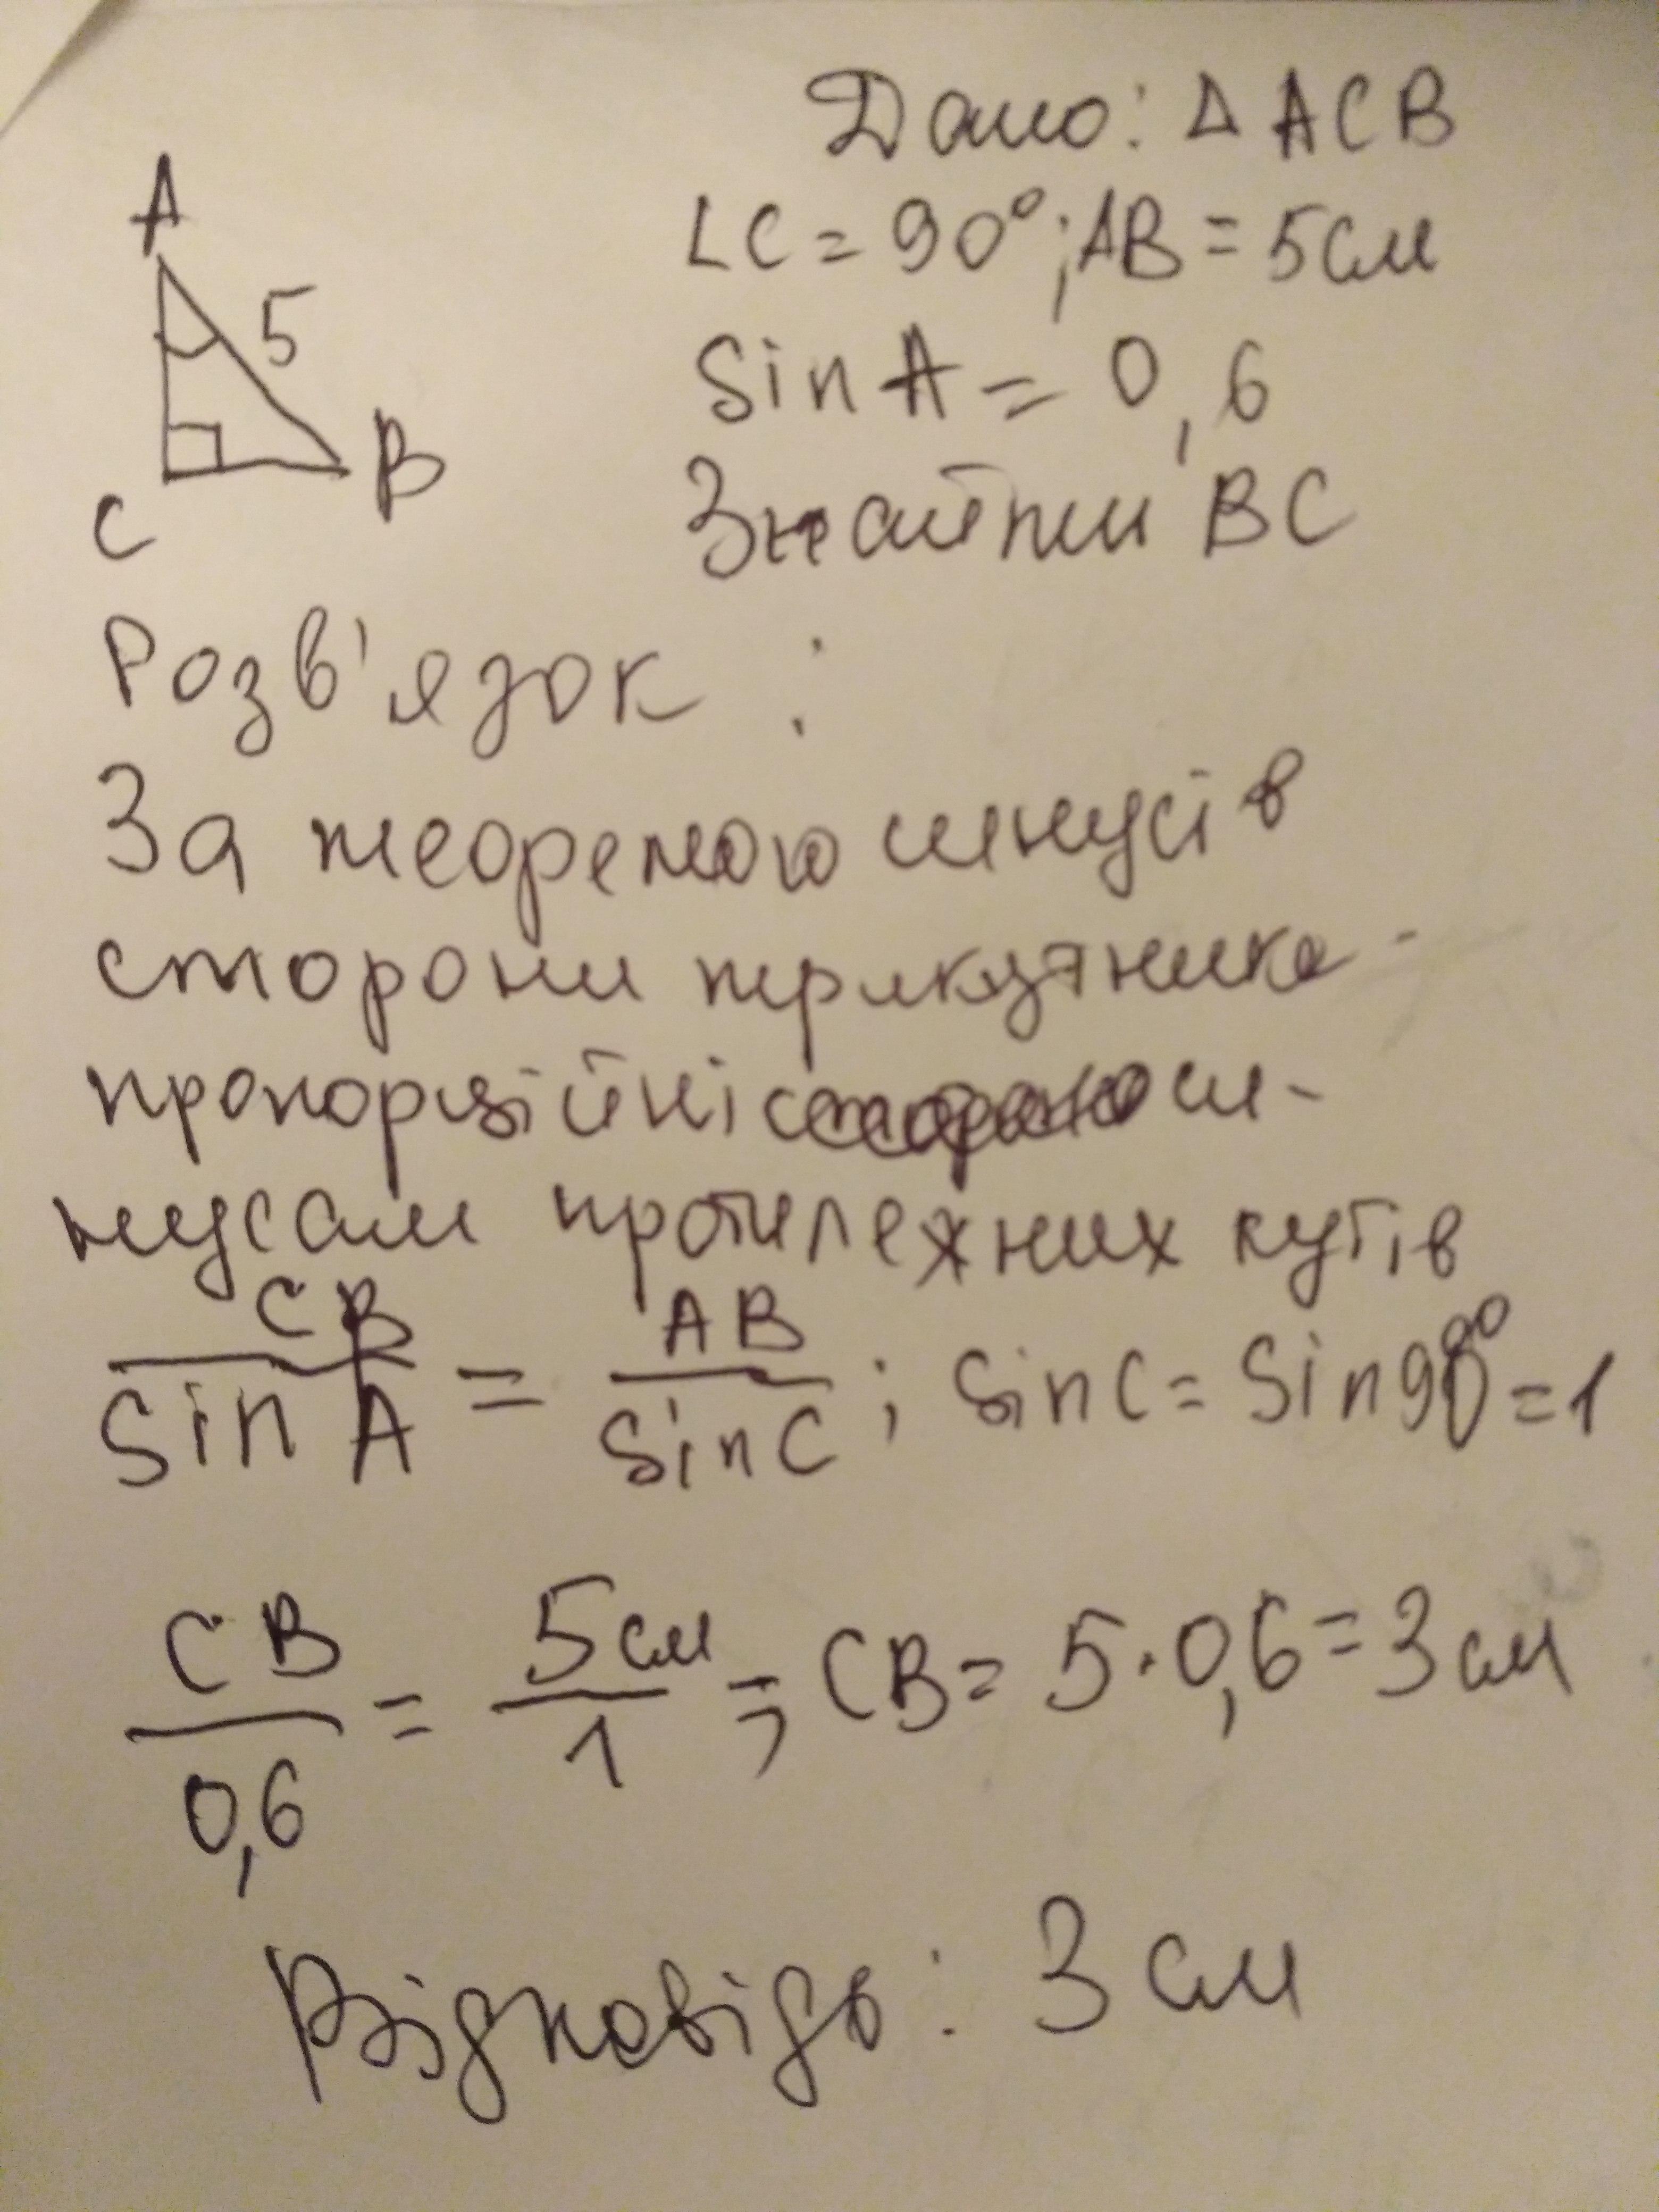 Дано: Δ ACB
∠C = 90°; AB = 5 см
Sin A = 0,6
Знайти BC
A
5
B
C
Розв'язок :
За теоремою синусів
сторони трикутника
пропорційні си-
нусам протилежних кутів
CB / Sin A = AB / Sin C ; Sin C = Sin 90° = 1
CB / 0,6 = 5 см / 1 ; CB = 5 · 0,6 = 3 см
Відповідь : 3 см